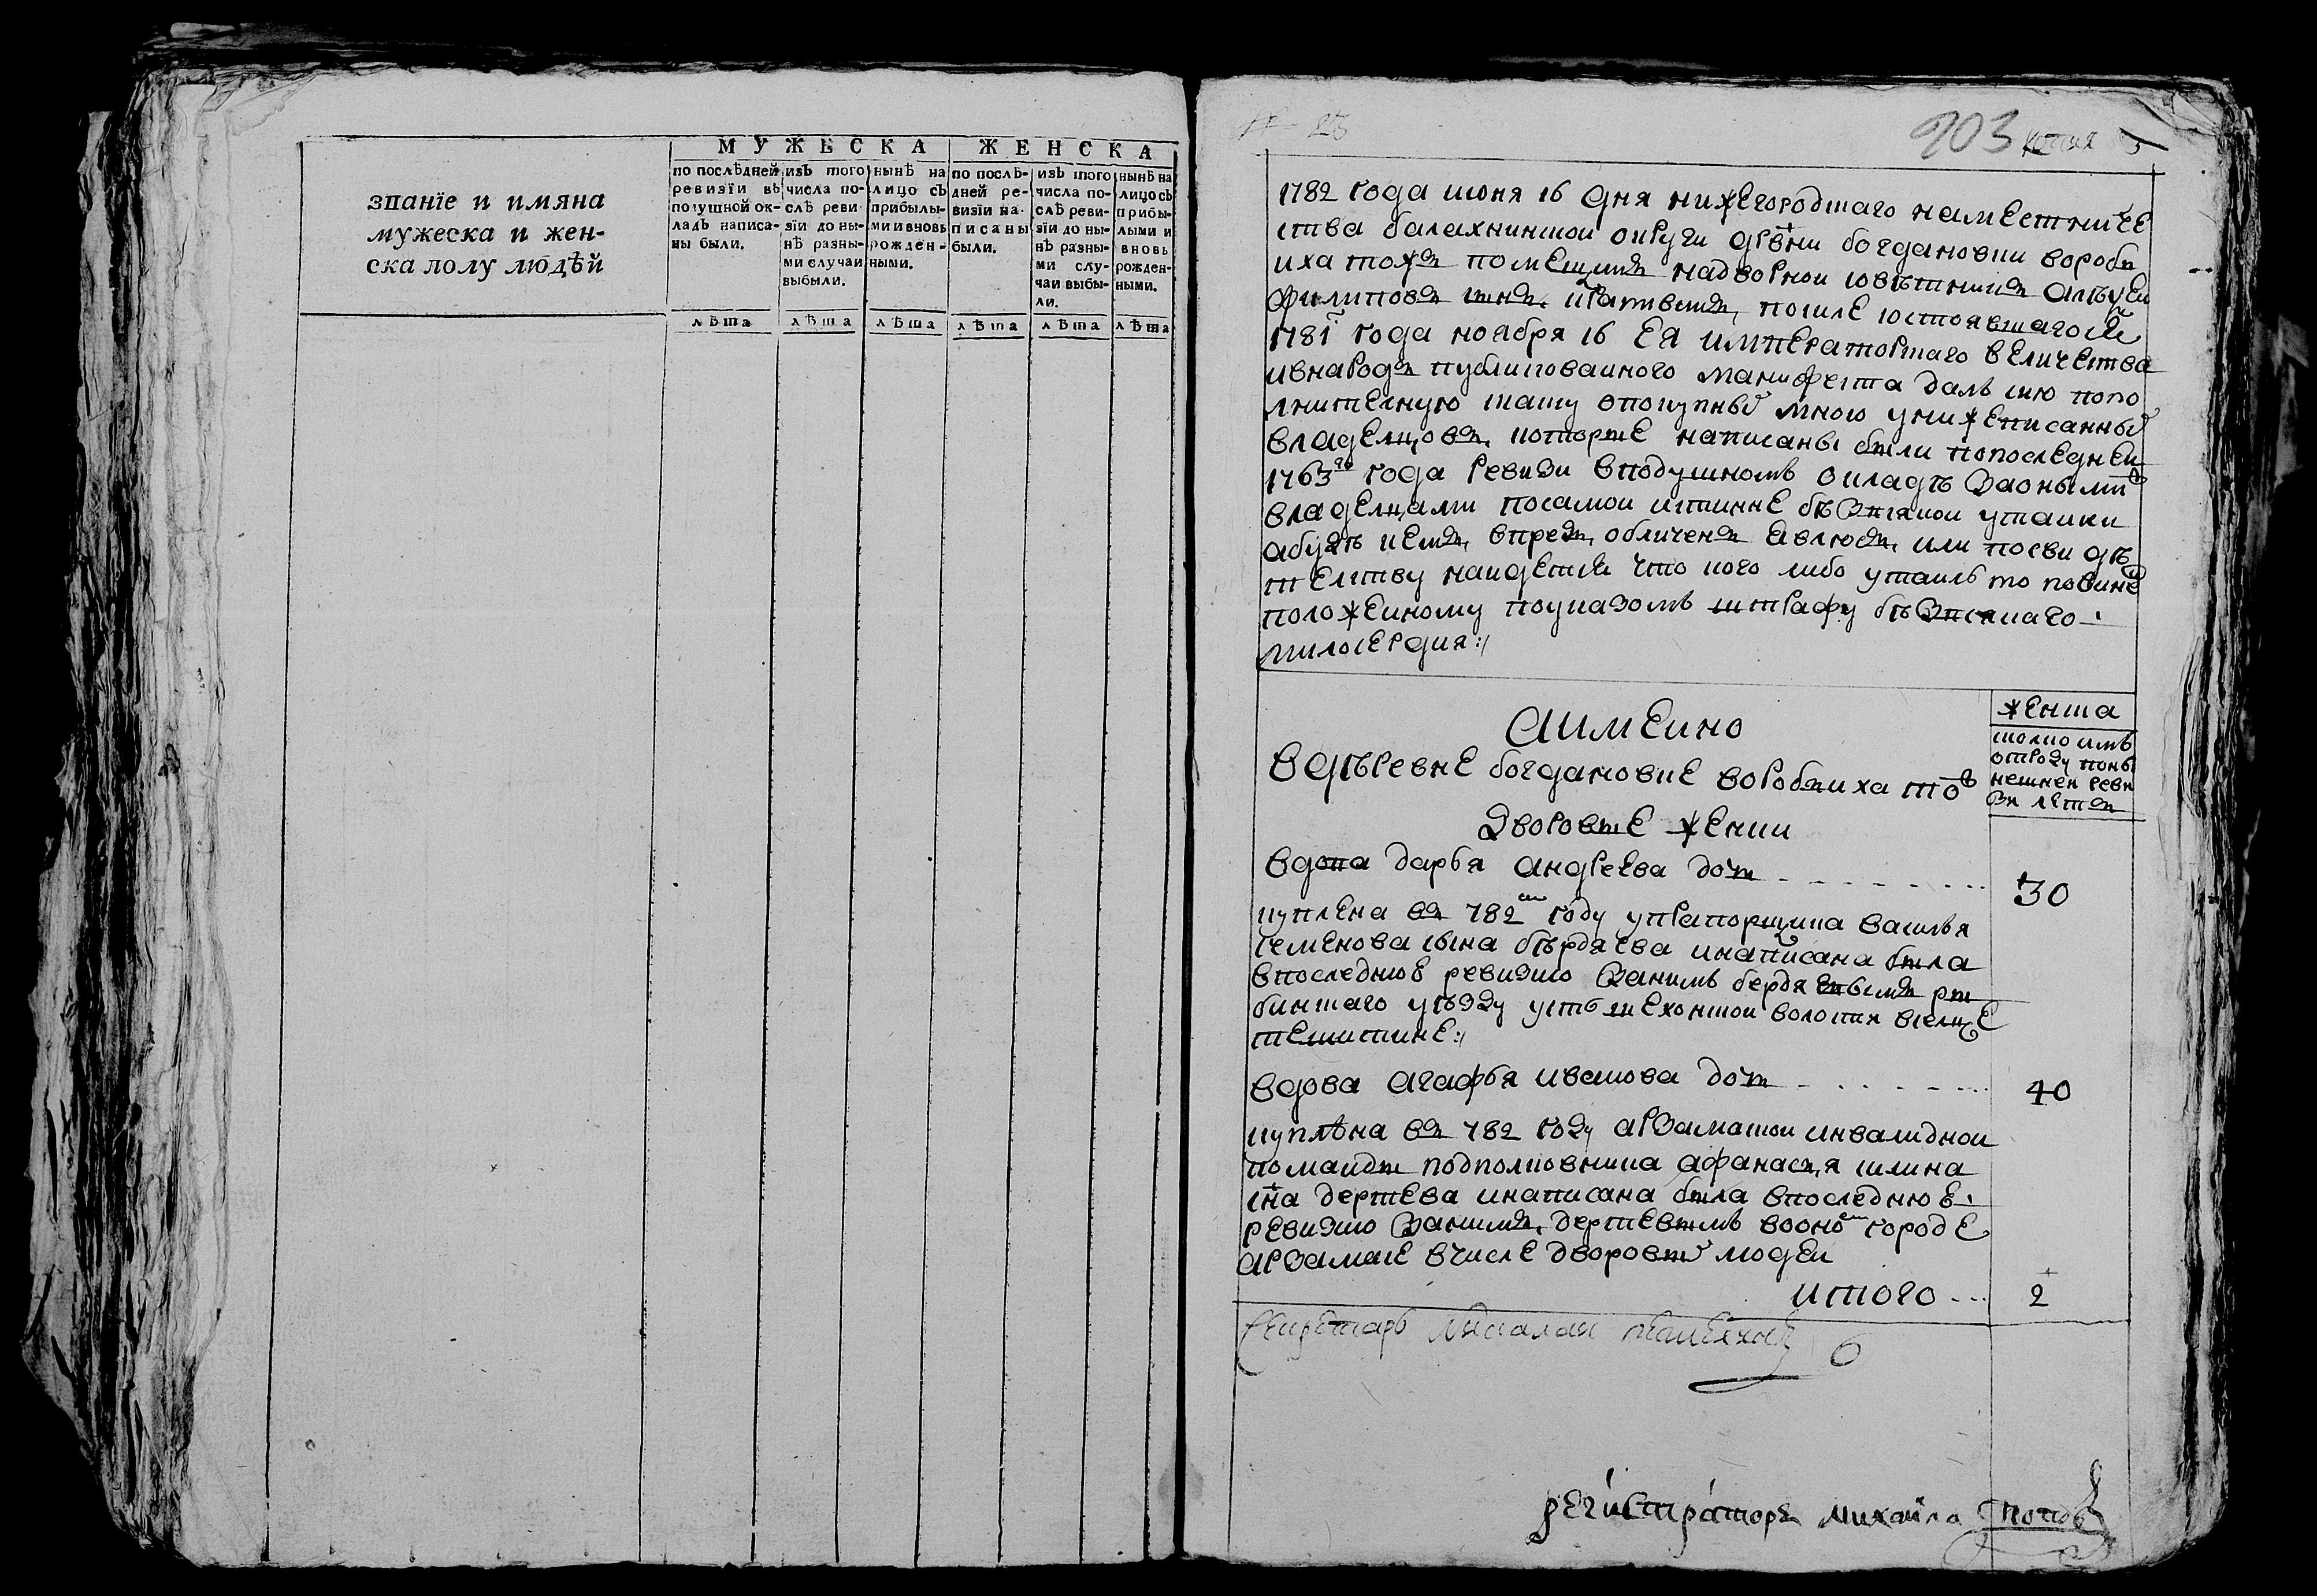 МУЖЕСКА ЖЕНСКА
званїе и имяна
мужеска и жен-
ска полу людѣй
по послѣдней
ревизїи въ
подушной ок-
ладъ написа-
ны были.
изъ того
числа по-
слѣ реви-
зїи до ны-
нѣ разны-
ми случаи
выбыли.
нынѣ на
лицо съ
прибылы-
ми и вновь
рожден-
ными.
по послѣ-
дней ре-
визїи на-
писаны
были.
изъ того
числа по-
слѣ реви-
зїи до ны-
нѣ разны-
ми слу-
чаи выбы-
ли.
нынѣ на
лицо съ
прибы-
лыми и
вновь
рожден-
ными.
лѣта лѣта лѣта лѣта лѣта лѣта
903 копия
1782 года июня 16 дня нижегородскаго наместниче
ства балахнинской округи дрвни богдановки вороби
иха тожъ помещикъ надворной советникъ алѣѯей
филиповъ снъ после состоявшагося
1781 года ноября 16 ея императорскаго величества
ивнародъ публикованного манифеста далъ сию попо
лнителную скаску опокупны мною унижеписанны
владелцовъ которые написаны были попоследней
1763го года ревизи вподушномъ окладѣ заоными
владелцами посамой истинне бѣзвсякой утайки
абудѣ кемъ впредъ обличенъ явлюсъ или посвидѣ
телству найдется что кого либо утаилъ то повине
положенному поуказомъ штрафу бѣзвсякаго
милосердия:/
аимянно
вдѣревне богдановке воробьиха тоъ
дворовые женки
женска
сколко имъ
отроду поны
нешней реви
зи летъ
вдова дарья андреева дочъ - - - - - 30
куплена въ 782м году укапорщика василья
семенова сына бѣрдяева инаписана была
впоследнюю ревизию занимъ бердяевымъ ры
бинскаго уѣзду усть шехонской волости вселце
тешитине:/
вдова агафья иванова дочъ - - - - - 40
куплѣна въ 782 году арзамаской инвалидной
команды подполковника афанасья силина
сна дертева инаписана была впоследнюю
ревизию занимъ дертевымъ вооном городе
арзамасе вчисле дворовы людей
итого - - 2
Секретарь
регистраторъ михаила поповъ